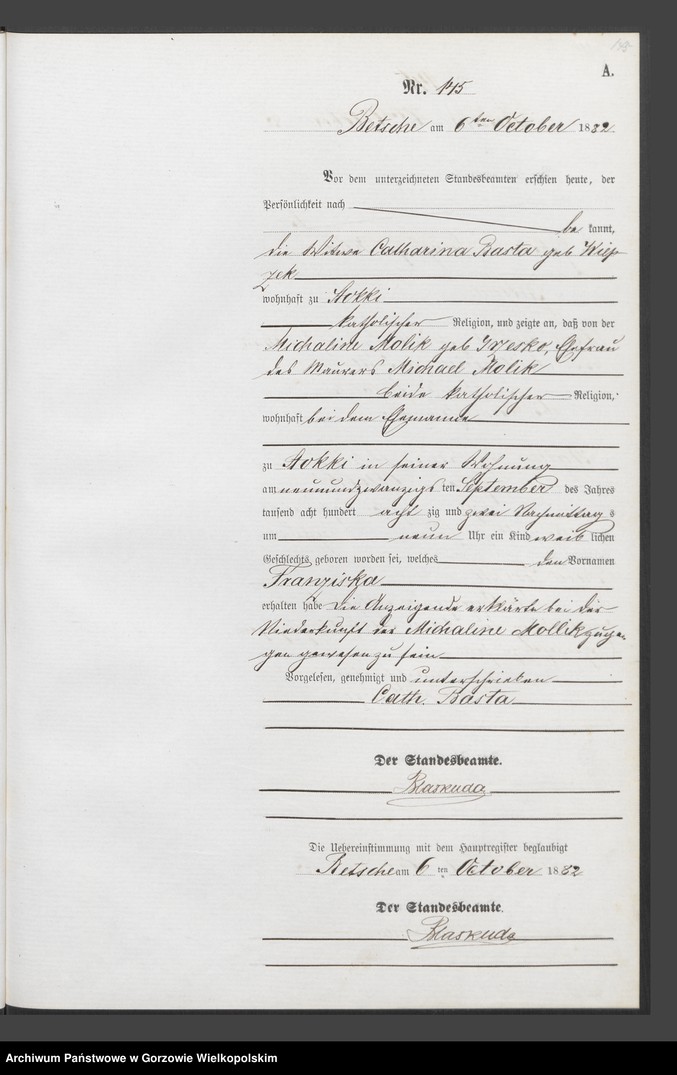 A.
Nr. 145
Betsche am 6ten October 1882
Vor dem unterzeichneten Standesbeamten erschien heute, der
Persönlichkeit nach
be kannt,
die Witwe Catharina Basta geb
wohnhaft zu Stokki
katholischer Religion, und zeigte an, daß von der
Michaline Molik geb Grzesko, Ehefrau
des Maurers Michael Molik
beide katholischer Religion,
wohnhaft bei dem Ehemanne
zu Stokki in seiner Wohnung
am neunundzwanzigs ten September des Jahres
tausend acht hundert acht zig und zwei Nachmittag s
um neun Uhr ein Kind weib lichen
Geschlechts geboren worden sei, welches den Vornamen
Franziska
erhalten habe Die Anzeigende erklärte bei der
Niederkunft der Michaline Mollik zuge-
gen gewesen zu sein
Vorgelesen, genehmigt und unterschrieben
Cath. Basta
Der Standesbeamte.
Blaskuda
Die Uebereinstimmung mit dem Hauptregister beglaubigt
Betsche am 6 ten October 1882
Der Standesbeamte.
Blaskuda
Archiwum Państwowe w Gorzowie Wielkopolskim